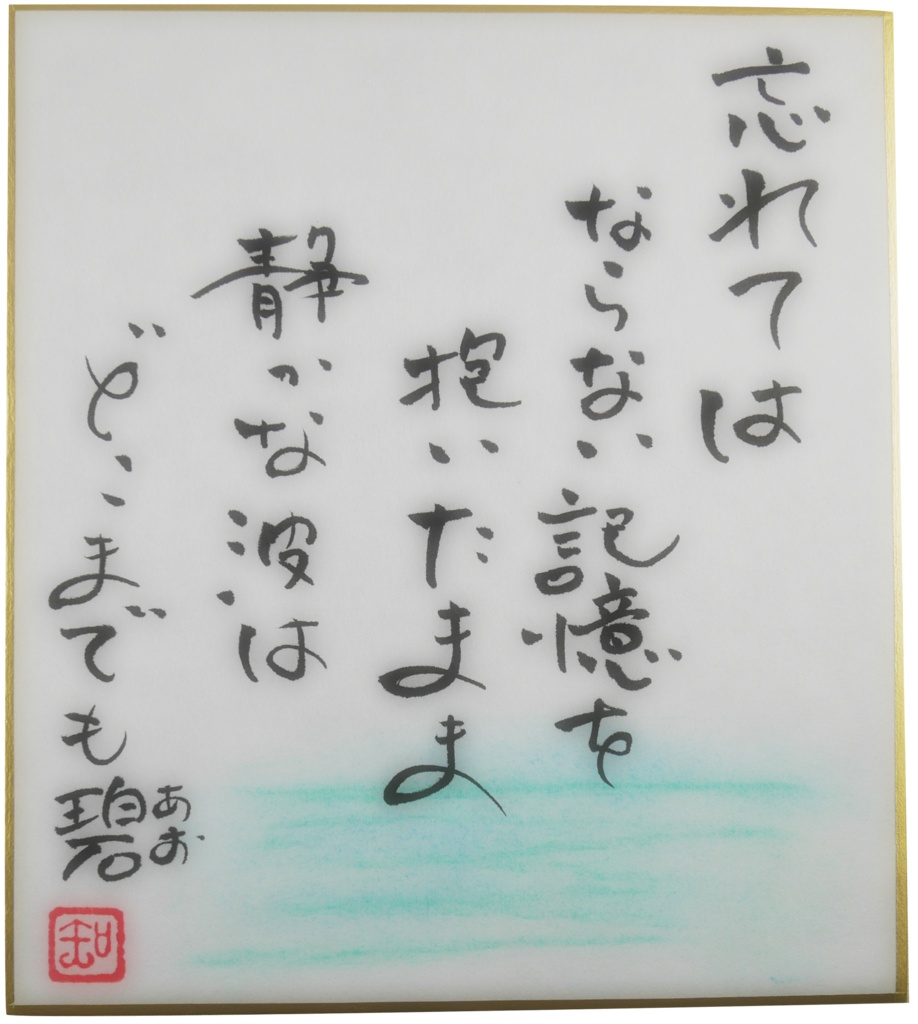 忘れては
ならない記憶を
抱いたまま
静かな波は
どこまでも碧
あお
知